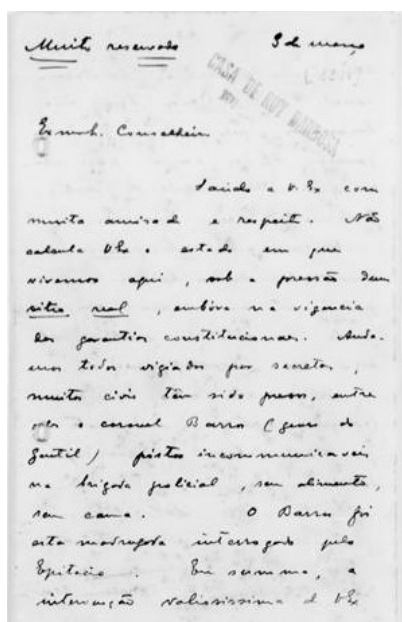 Muito reservado 3 de março
CASA DE RUY BARBOSA
Exmo. Conselheiro
Saúdo a V. Ex com
muita amisade e respeito. Não
calcula V Ex o estado em que
vivemos aqui, sob a pressão dum
sitio real, embóra na vigencia
das garantias constitucionaes. Anda-
mos todos vigiados por secretas,
muitos civis têm sido presos, entre
elles o coronel Barros (genro do
Gentil) postos incommunicaveis
na brigada policial, sem alimento,
sem cama. O Barros foi
esta madrugada interrogado pelo
Epitacio. Em summa, a
intervenção valiosissima d V Ex